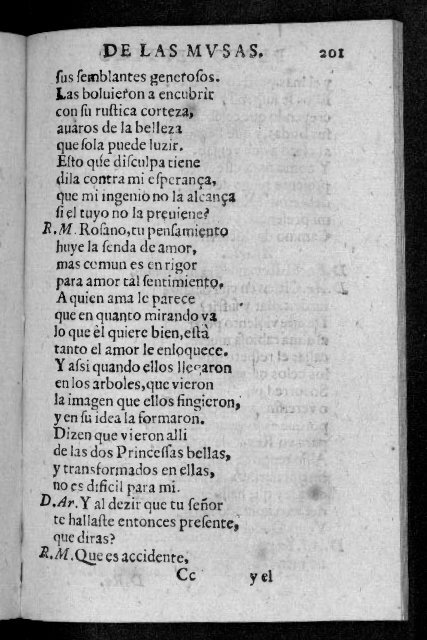 DE LAS MVSAS. 201
sus semblantes generosos.
Las boluieron a encubrir
con su rustica corteza,
auaros de la belleza
que sola puede luzir.
Esto que disculpa tiene
dila contra mi esperança,
que mi ingenio no la alcança
si el tuyo no la preuiene?
R.M. Rosano, tu pensamiento
huye la senda de amor,
mas comun es en rigor
para amor tal sentimiento.
A quien ama le parece
que en quanto mirando va
lo que èl quiere bien, està
tanto el amor le enloquece.
Y assi quando ellos llegaron
en los arboles, que vieron
la imagen que ellos fingieron,
y en su idea la formaron.
Dizen que vieron alli
de las dos Princessas bellas,
y transformados en ellas,
no es dificil para mi.
D.Ar. Y al dezir que tu señor
te hallaste entonces presente,
que diras?
R.M. Que es accidente,
Cc y el